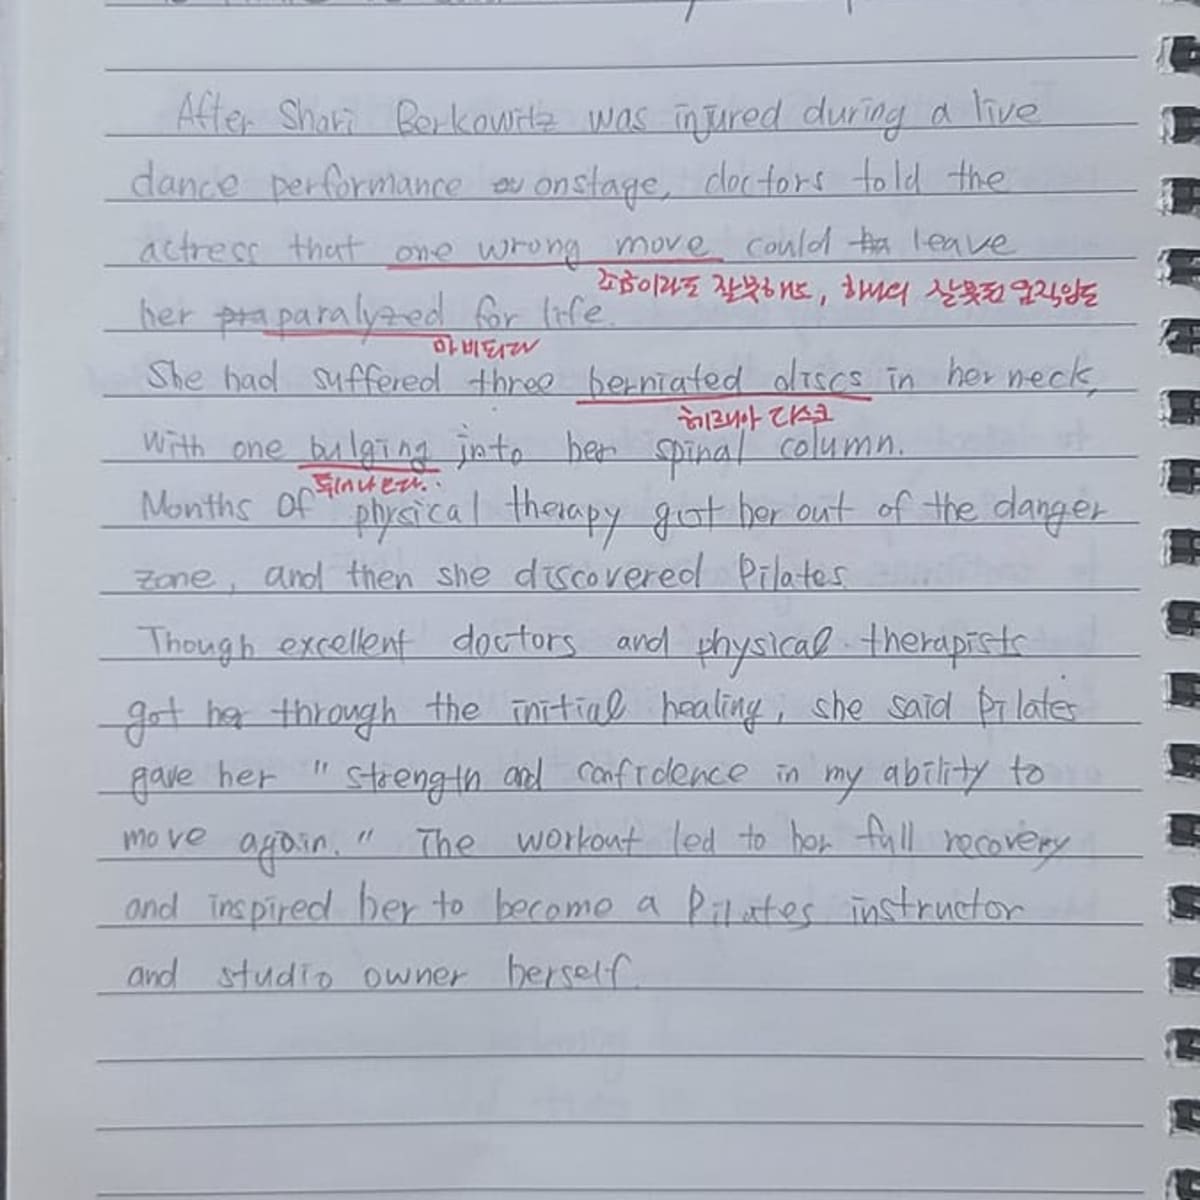 After Shari Berkowitz was injured during a live
dance performance onstage, doctors told the
actress that one wrong move could leave
조금이라도 잘못해도, 하나의 잘못된 움직임도
her paralyzed for life.
마비되다
She had suffered three herniated discs in her neck,
헤르니아 디스크
with one bulging into her spinal column.
튀어나온다..
Months of physical therapy got her out of the danger
zone, and then she discovered Pilates.
Though excellent doctors and physical therapists
got her through the initial healing, she said Pilates
gave her "strength and confidence in my ability to
move again." The workout led to her full recovery
and inspired her to become a Pilates instructor
and studio owner herself.